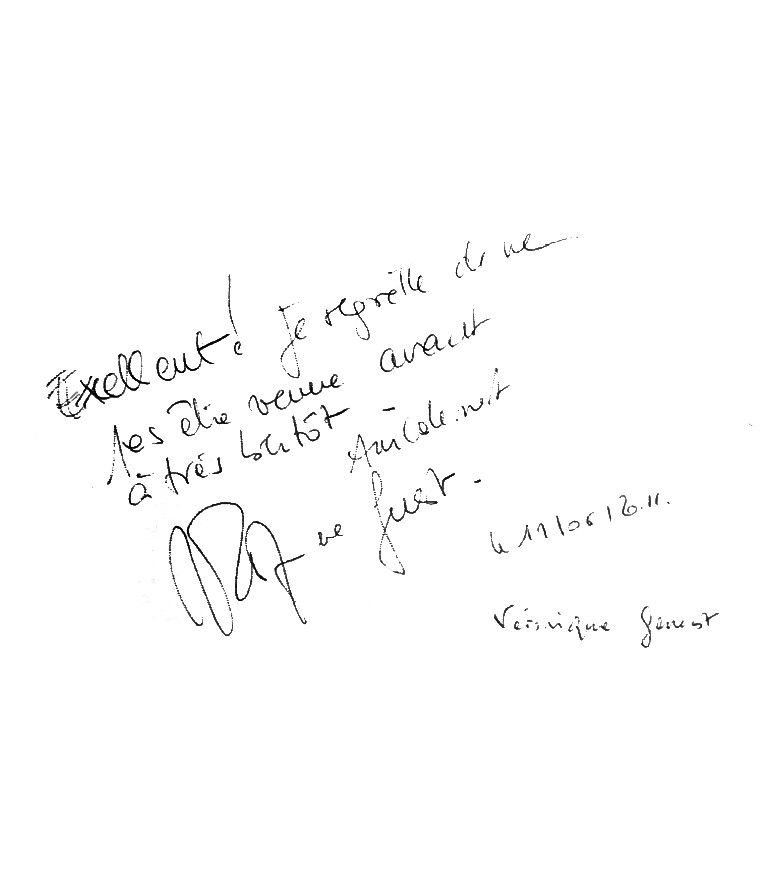 Exellent! Je regrette de ne
pas être venue avant
à très bientôt - Amicalement
Genest.
le 11/06/2011.
Véronique Genest